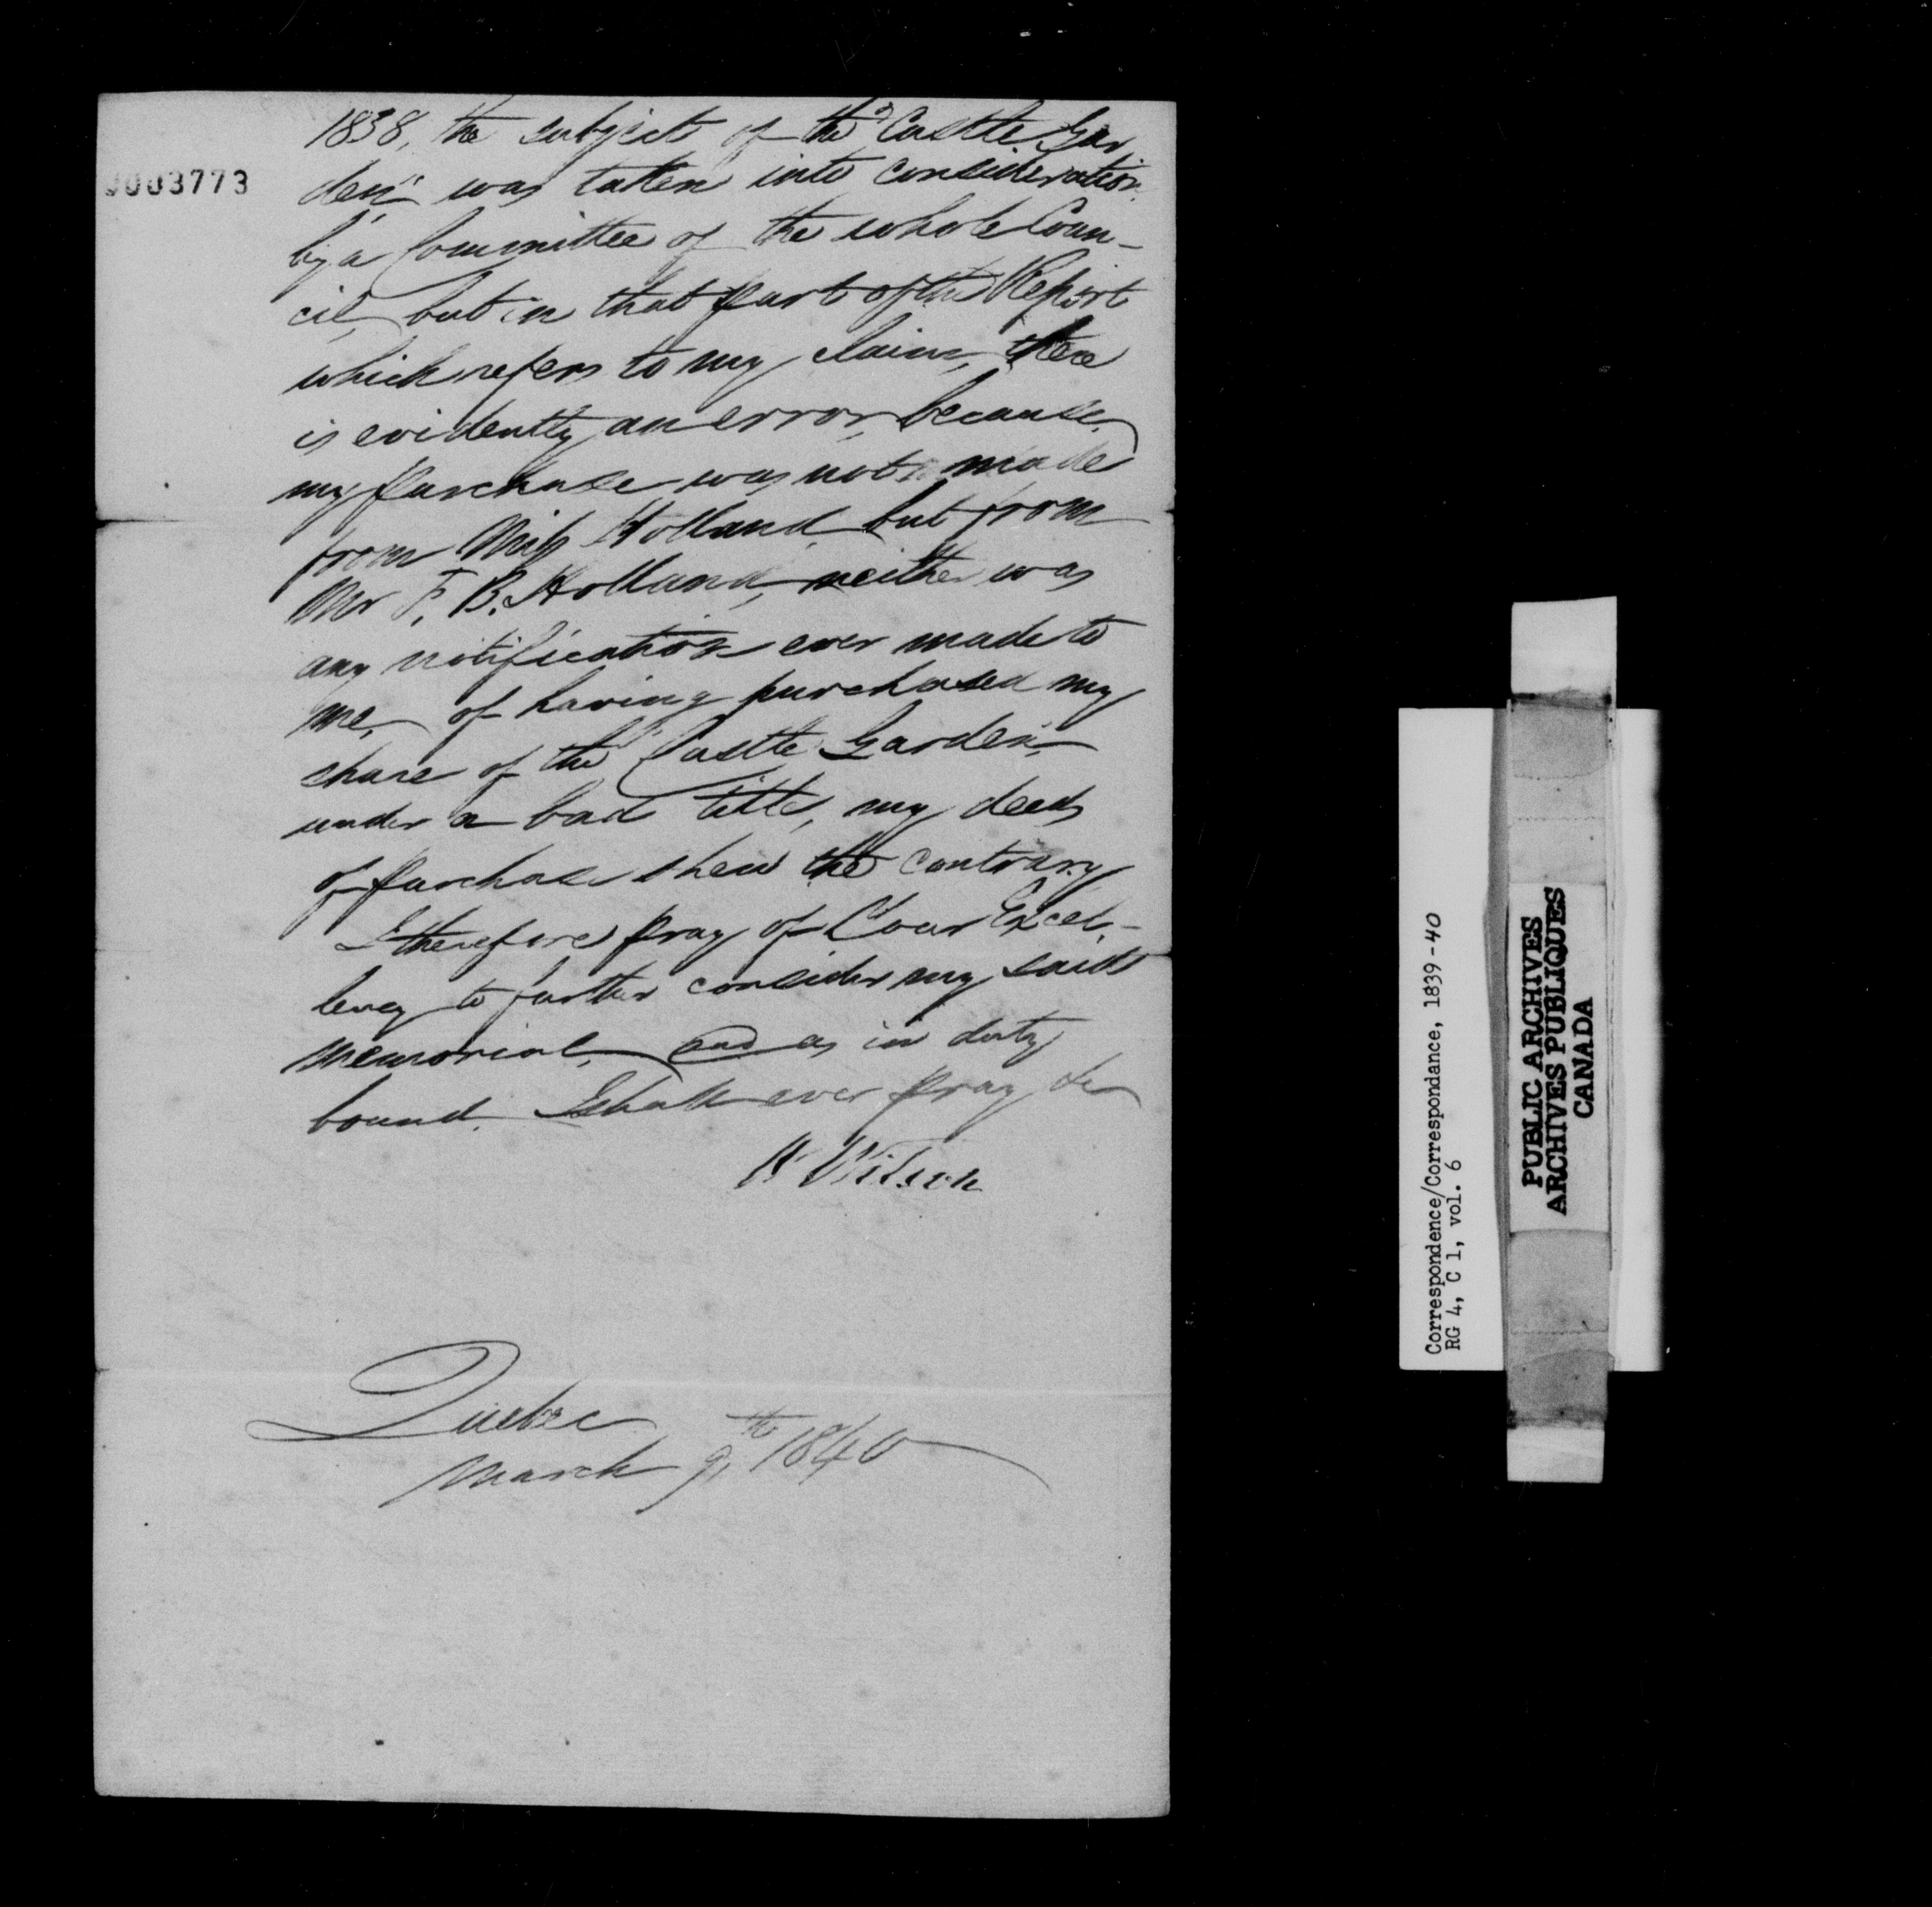 0003773
1838, the subject of the "Castle Gar
den" was taken into consideration
by a Committee of the whole Coun-
cil, but in that part of the Report
which refers to my claim, there
is evidently an error, because
my purchase was not made
from Miss Holland but from
Mr F. B. Holland, neither was
any notification ever made to
me, of having purchased my
share of the "Castle Garden",
under a bad title, my deeds
of purchase shew the contrary
I therefore pray of Your Excel-
lency to further consider my said
memorial, and as in duty
bound. I shall ever pray &c
W Wilson
Quebec
March 9th 1840
Correspondence/Correspondance, 1839-40
RG 4, C 1, vol. 6
PUBLIC ARCHIVES
ARCHIVES PUBLIQUES
CANADA